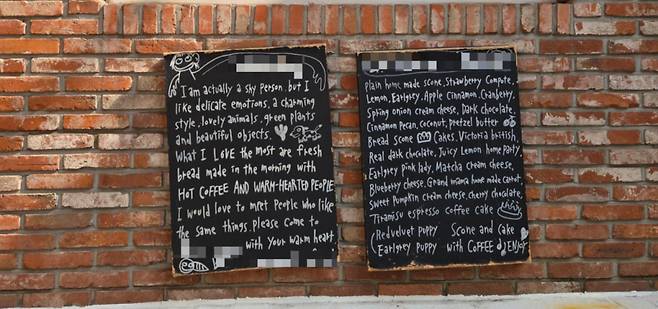 I am actually a shy person. but I
like delicate emotions, a charming
style, lovely animals, green plants
and beautiful objects.
What I LOVE the most are fresh
bread made in the morning with
HOT COFFEE AND WARM-HEARTED PEOPLE
I would love to meet PEOPLE who like
the same things. please come to
with your warm heart.
plain home made scone, Strawberry Compote,
Lemon, Earlgrey, Apple Cinnamon, Cranberry,
Spring onion cream cheese, Dark chocolate,
Cinnamon Pecan, Coconut, pretzel butter
Bread Scone Cakes, Victoria british,
Real dark chocolate, Juicy Lemon home Party,
Earlgrey Pink lady, Matcha Cream cheese,
Blueberry cheese, Grand mama home made Carrot,
Sweet Pumpkin Cream cheese, cherry chocolate,
Tiramisu espresso Coffee Cake
(Redvelvet puppy Scone and Cake
Earlgrey Puppy with COFFEE ENJOY